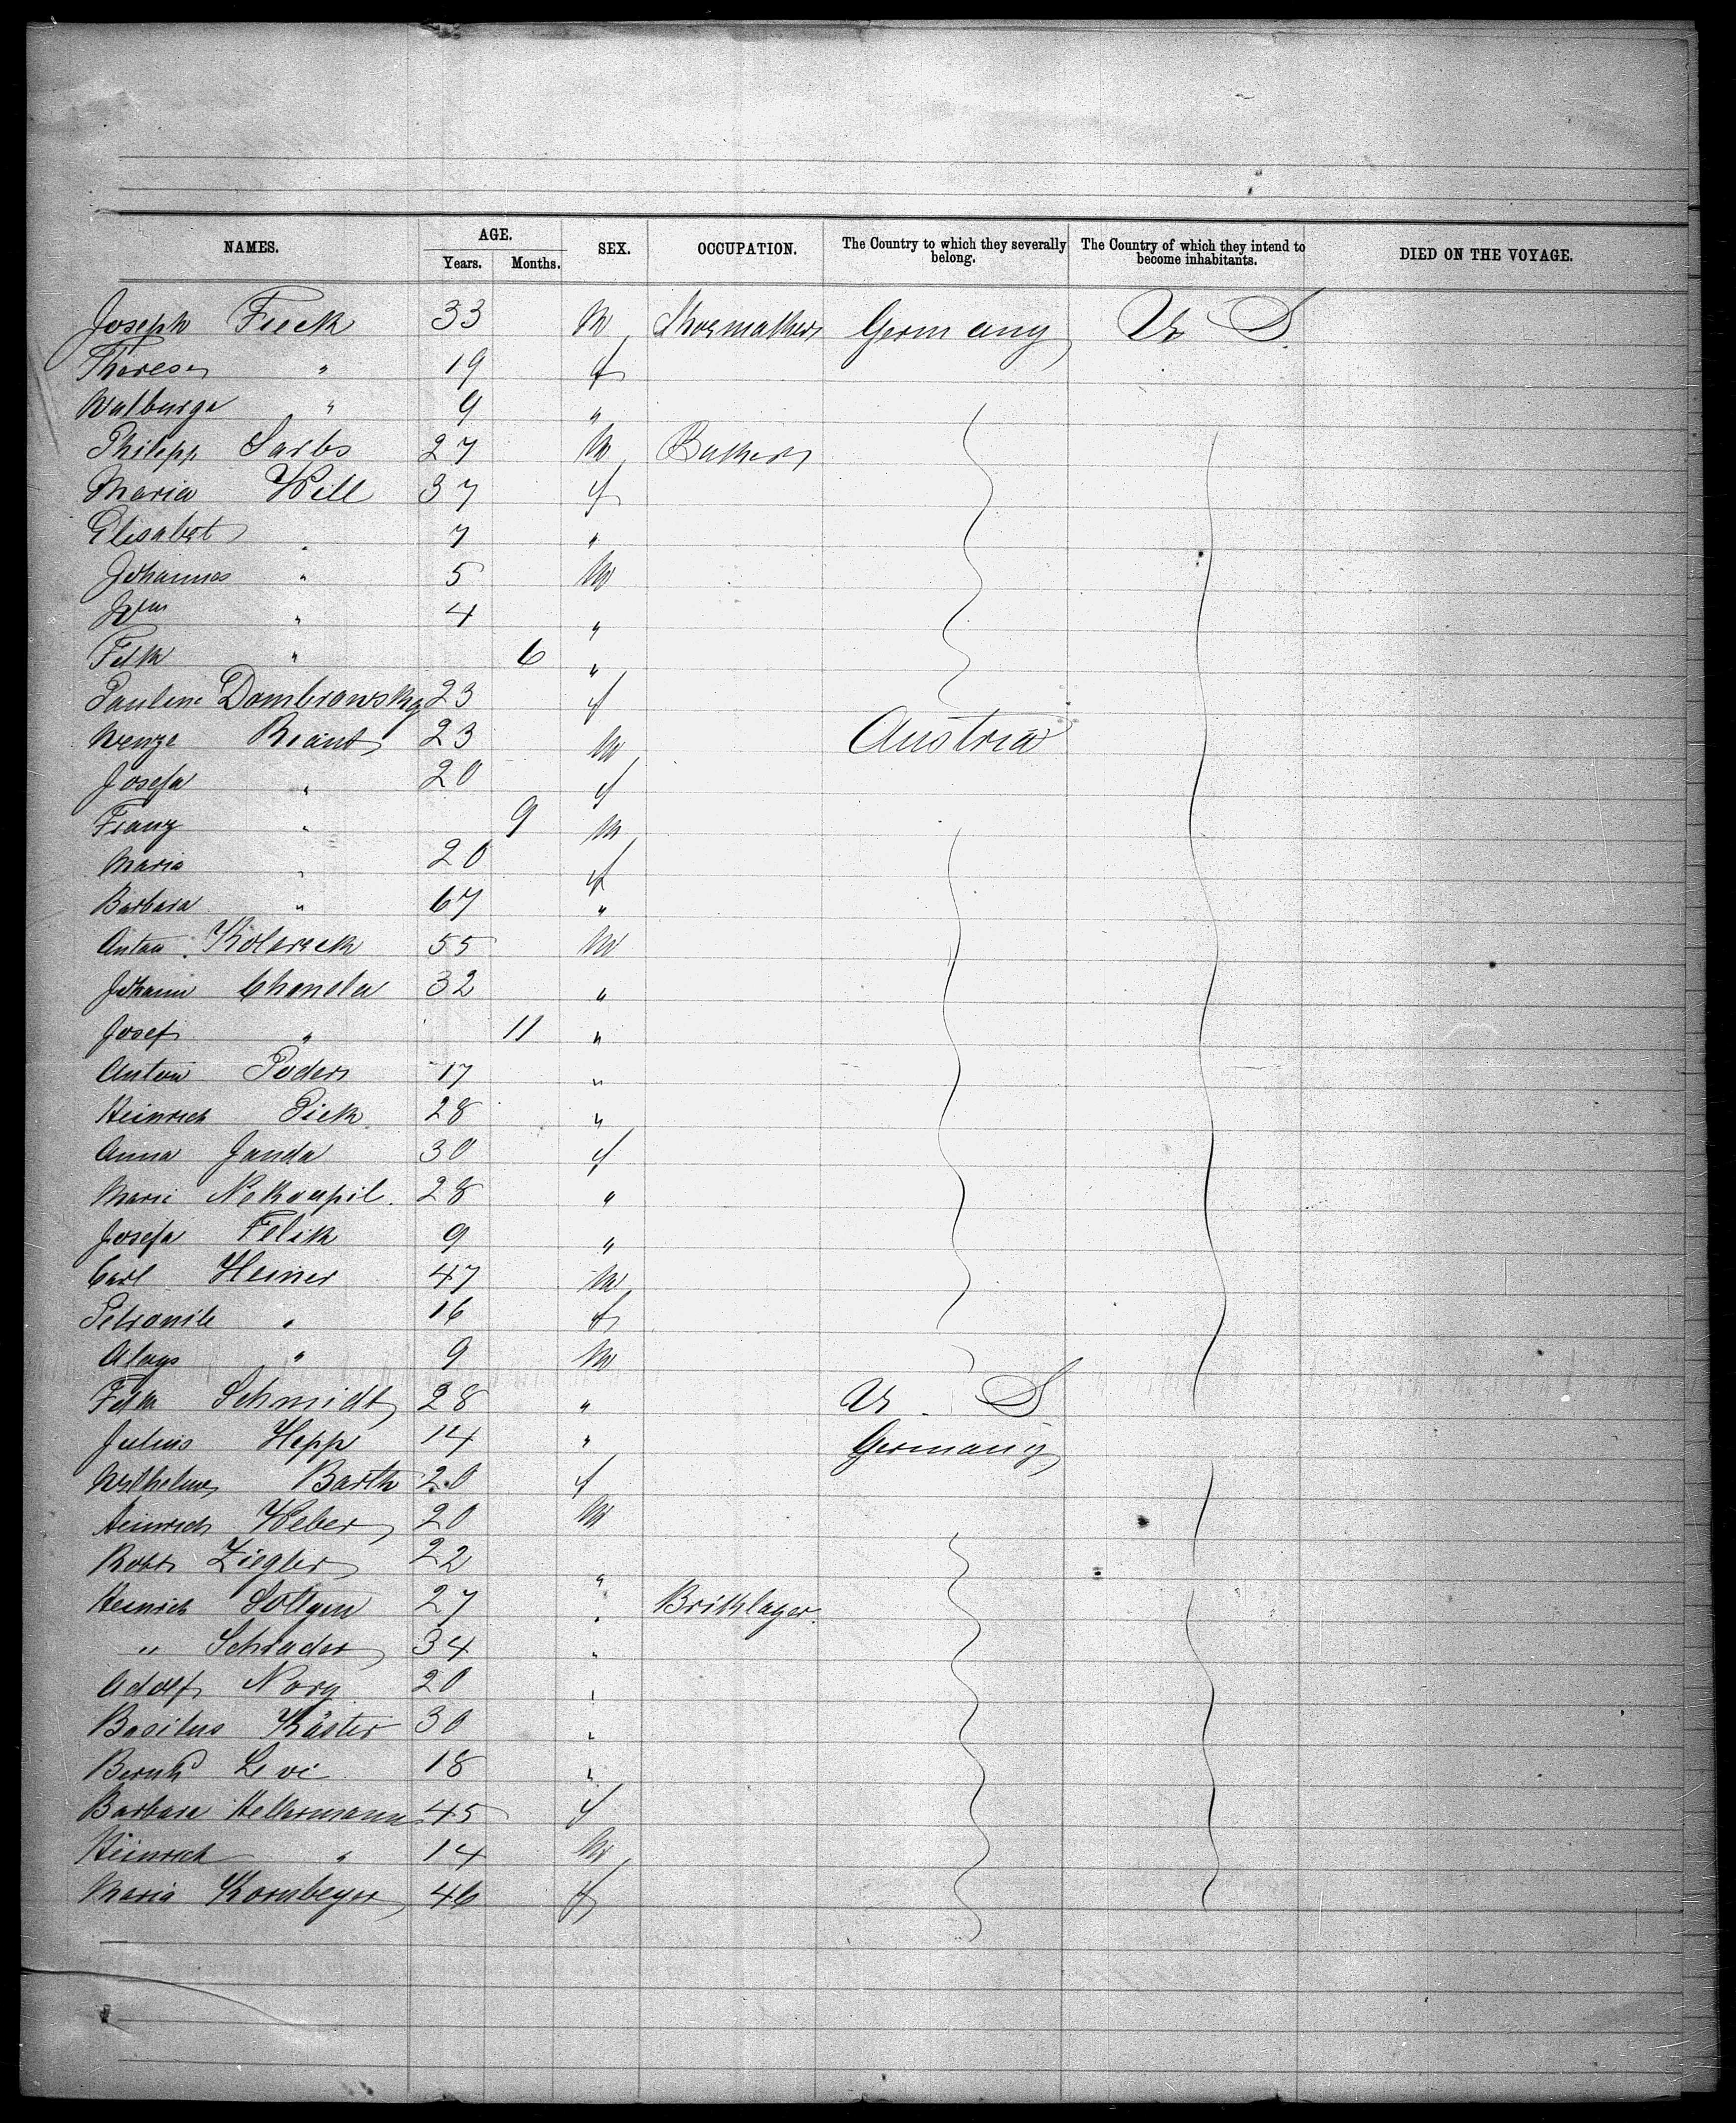 NAMES. AGE. SEX. OCCUPATION. The Country to which they severally belong. The Country of which they intend to become inhabitants. DIED ON THE VOYAGE.
Years. Months.
Joseph Fieck 33 M Shoemaker Germany U S
Theresa " 19 f
Walburga " 9 "
Philipp Sarbs 27 M Baker
Maria Will 37 f
Elisabet " 7 "
Johannes " 5 M
" 4 "
Felix " 6 "
Pauline Dombrowsky 23 f
Wenze 23 M Austria
Josefa " 20 f
Franz " 9 M
Maria " 20 f
Barbara " 67 "
Anton 55 M
Johann Chanela 32 "
Josef " 11 "
Anton Poder 17 "
Heinrich Pick 28 "
Anna Janda 30 f
Marie Nekoupil. 28 "
Josefa Felik 9 "
Carl Heiner 47 M
Petronile " 16 f
Aloys " 9 M
Schmidt 28 " U. S
Julius Hepp 14 " Germany
Wilhelm Barth 20 f
Heinrich Weber 20 M
Robt Ziegler 22 "
Heinrich 27 " Briklayer.
" Schrader 34 "
Adolf 20 "
Basilus Küster 30 "
Bernhd Levi 18 "
Barbara Hellermann 45 f
Heinrich " 14 M
Maria Kornbeyer 46 f